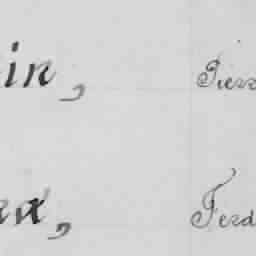 in, Pier
ax, Ferd